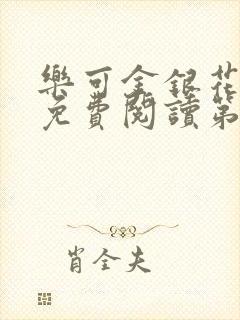 樂可金銀花
免費閱讀第
肖全夫